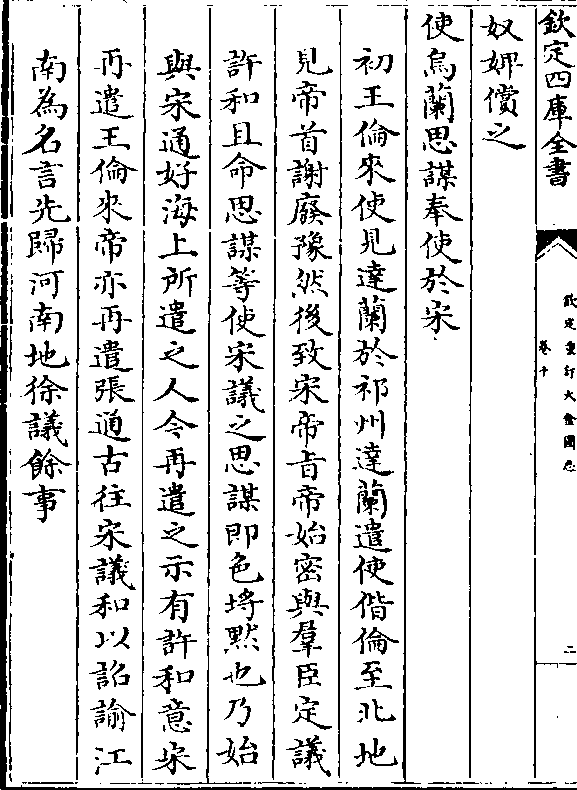 欽定四庫全書
欽定重訂大金國志
卷十
二
奴婢償之
使烏蘭思謀奉使於宋
初王倫來使見達蘭於祁州達蘭遣使偕倫至北地
見帝首謝廢豫然後致宋帝旨帝始密與羣臣定議
許和且命思謀等使宋議之思謀即色埓默也乃始
與宋通好海上所遣之人今再遣之示有許和意宋
再遣王倫來帝亦再遣張通古往宋議和以詔諭江
南為名言先歸河南地徐議餘事